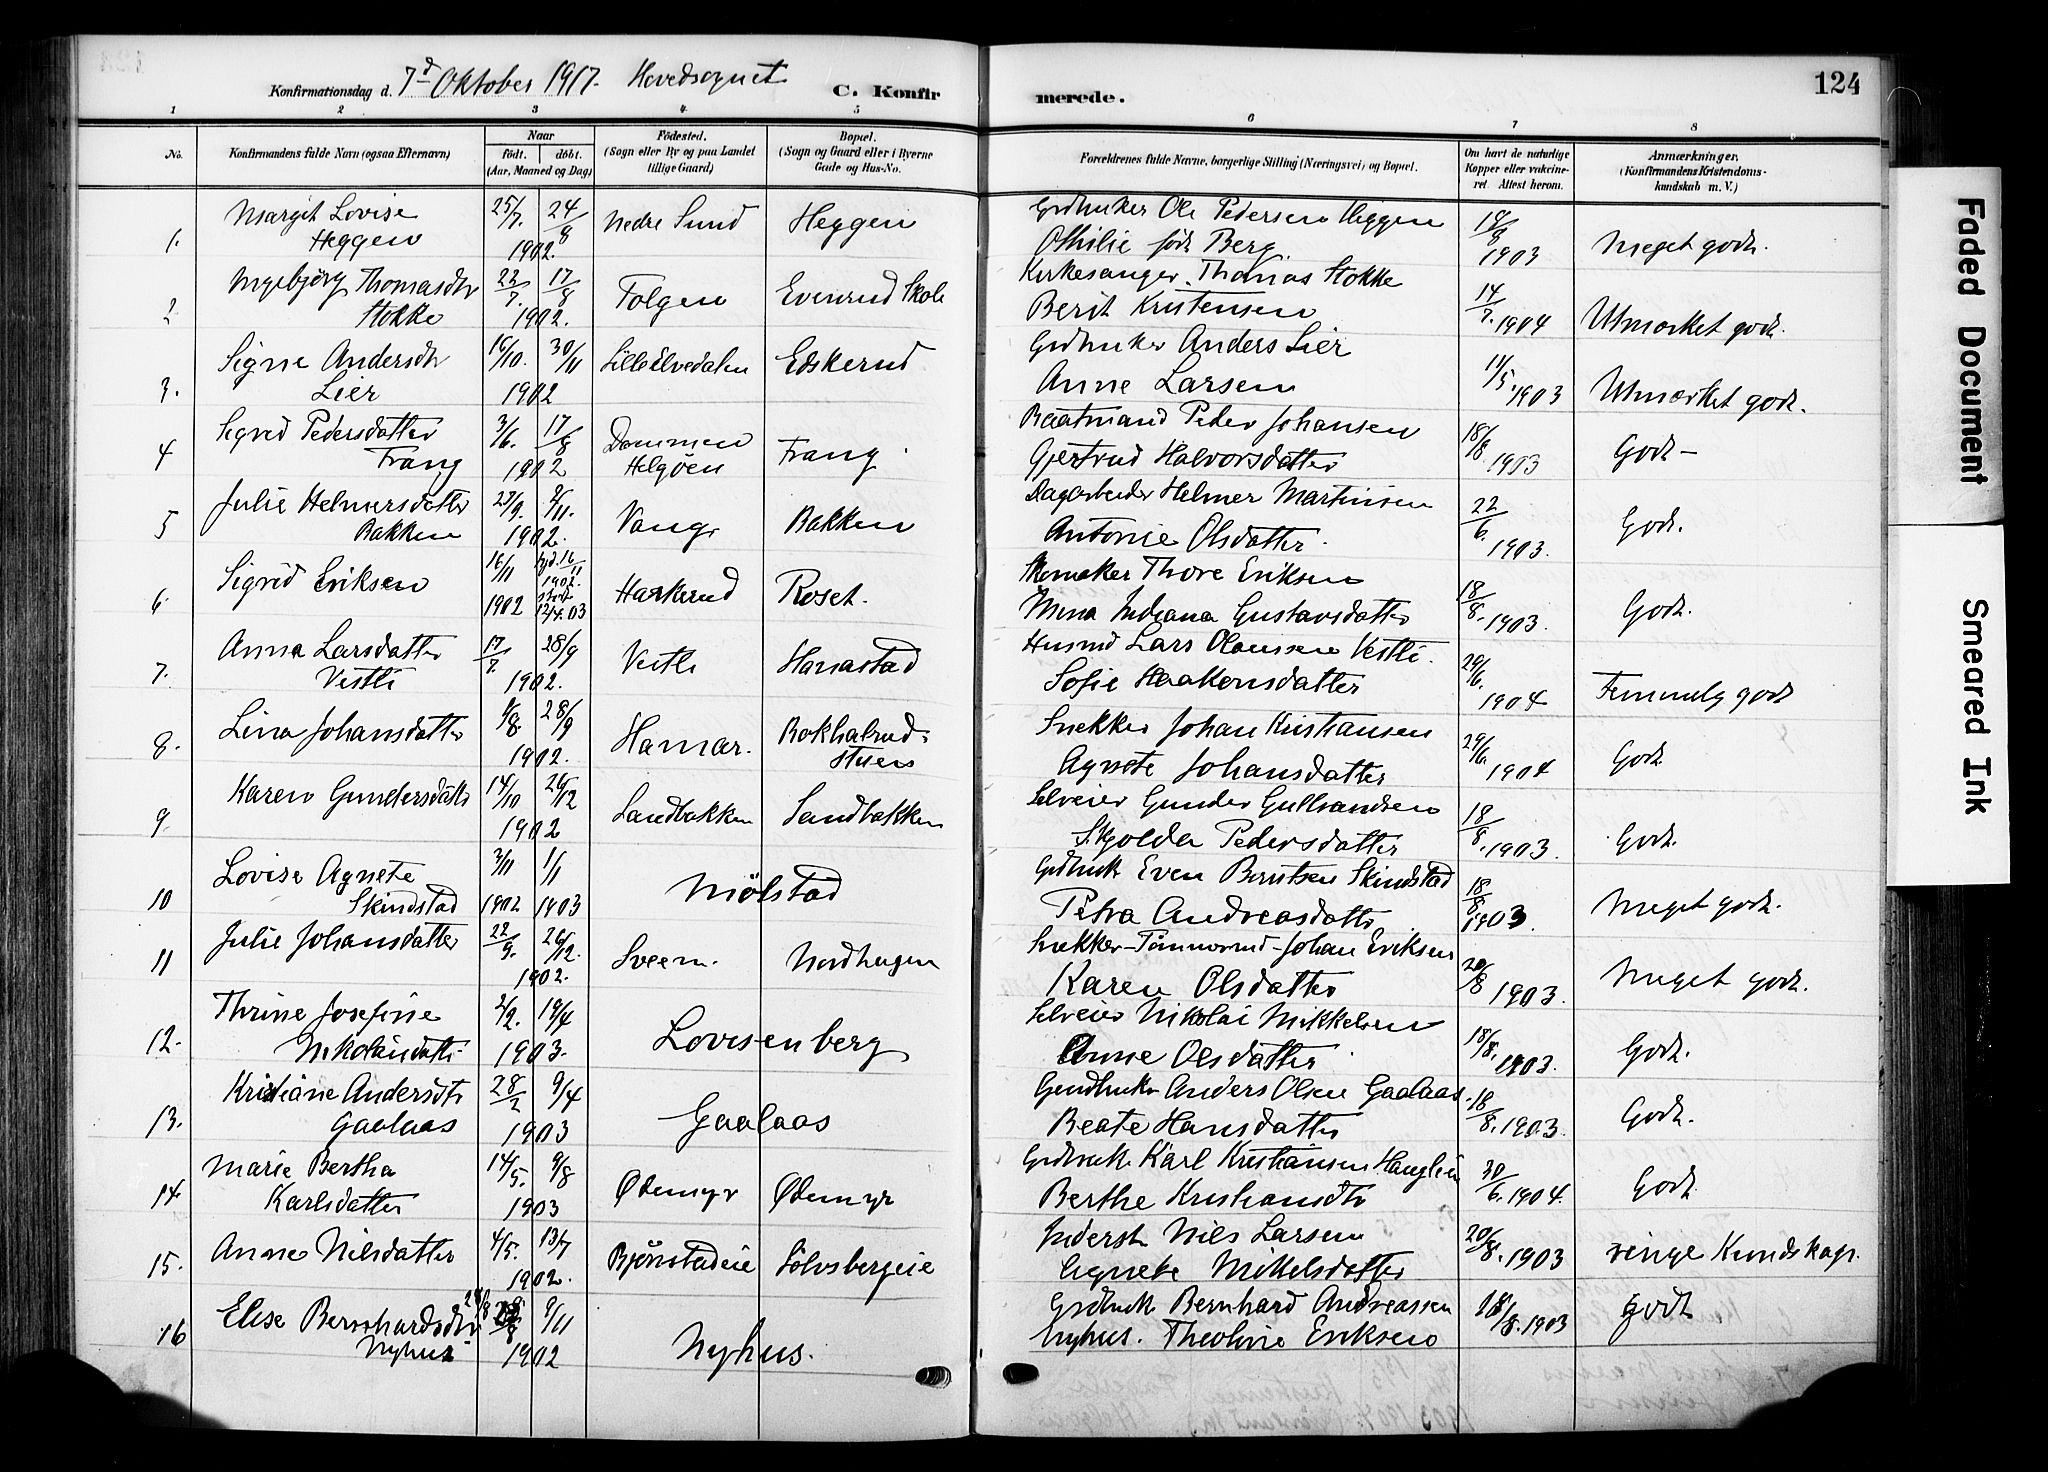 124
Konfirmationsdag d. 7d Oktober 1917. Hovedsognet
C. Konfirmerede.
1 2 3 4. 5 6 7 8
No. Konfirmandens fulde Navn (ogsaa Efternavn) Naar født. døbt. (Aar, Maaned og Dag) Fødested. (Sogn eller By og paa Landet tillige Gaard) Bopæl. (Sogn og Gaard eller i Byerne Gade og Hus-No. Forældrenes fulde Navne, borgerlige Stilling (Næringsvei) og Bopæl. Om havt de naturlige Kopper eller vakcineret. Attest herom. Anmærkninger. (Konfirmandens Kristendomskundskab m. V.)
Margit Lovise 25/7. 24/8 Nedre Sund Heggen Grdbruker Ole Pedersen Heggen 18/8
1. Heggen 1902. Othilie født Berg 1903 Meget godt.
Ingebjørg Thomasdtr 22/7. 17/8 Tolgen Evenrud Skole Kirkesanger Thomas Stokke 14/7.
2 Stokke 1902. Berit Kristensen 1904 Utmærket godt.
Signe Andersdtr 16/10. 30/11 Lille Elvedalen Edskerud Grdbruker Anders Lier 11/5.
3. Lier 1902 Anne Larsen 1903 Utmærket godt.
Sigrid Pedersdatter 3/6. 17/8 Dommen Frang Baatmand Peder Johansen 18/8
4 Frang 1902 Helgøen Gjertrud Halvorsdatter 1903 Godt –
Julie Helmersdatter 27/9. 9/11. Vang Bakken Dagarbeider Helmer Martinsen 22/6.
5 Bakken 1902. Antonie Olsdatter. 1903. Godt.
Sigrid Eriksen 16/11 hjd. 16/11 1902. Harkerud Roset. Skomaker Thore Eriksen 18/8.
6. 1902 12/4. 03 Mina Indiana Gustavsdatter 1903. Godt.
Anna Larsdatter 17/7. 28/9 Vestli Hanastad Husmd Lars Olaussen Vestli. 29/6.
7. Vestli 1902. Sofie Haakensdatter 1904 Temmelig godt
Lina Johansdatter 8. 28/9 Hamar. Snekker Johan Kristiansen 29/6
8. 1902. stuen Agnete Johansdatter 1904 Godt
Karen Gundersdatter 14/10 26/12 Sandbakken Sandbakken Selveier Gunder Gulbrandsen 18/8.
9. 1902 Skjolda Pedersdatter 1903. Godt.
Lovise Agnete 3/11 1/1 Mölstad Grdbruk Even Berntsen Skindstad 18/8
10 Skindstad 1902 1903 Petra Andreasdatter 1903. Meget godt.
Julie Johansdatter 22/9. 26/12. Sveen. Nordhagen Snekker–Tömmermd–Johan Eriksen 20/8
11 1902. Karen Olsdatter 1903. Meget godt.
Thrine Josefine 2/2. 19/4 Lovisenberg Selveier Nikolai Mikkelsen 18/8.
12. Nikolaisdatter 1903. Anne Olsdatter 1903. Godt.
Kristiane Andersdtr 28/2 9/4 Gaalaas Gaardbruker Anders Olsen Gaalaas. 18/8.
13. Gaalaas 1903 Beate Hansdatter 1903. Godt.
Marie Bertha 14/5. 9/8 Ødemyr Ødemyr Grdbruk Karl Kristiansen Hauglien 30/6.
14. Karlsdatter 1903 Berthe Kristiansdtr 1904. Godt
Anne Nilsdatter 4/5. 13/7 Bjørnstadeie Sölvsbergeie Inderst Nils Larsen 20/8.
15. 1902. Agnete Mikkelsdatter 1903 ringe Kundskap.
Elise Bernhardsdtr 28/8 9/11 Nyhus. Grdbruk Bernhard Andreassen 18/8.
16 Nyhus 1902 Nyhus. Theoline Eriksen 1903 godt
Faded Document
Smeared Ink